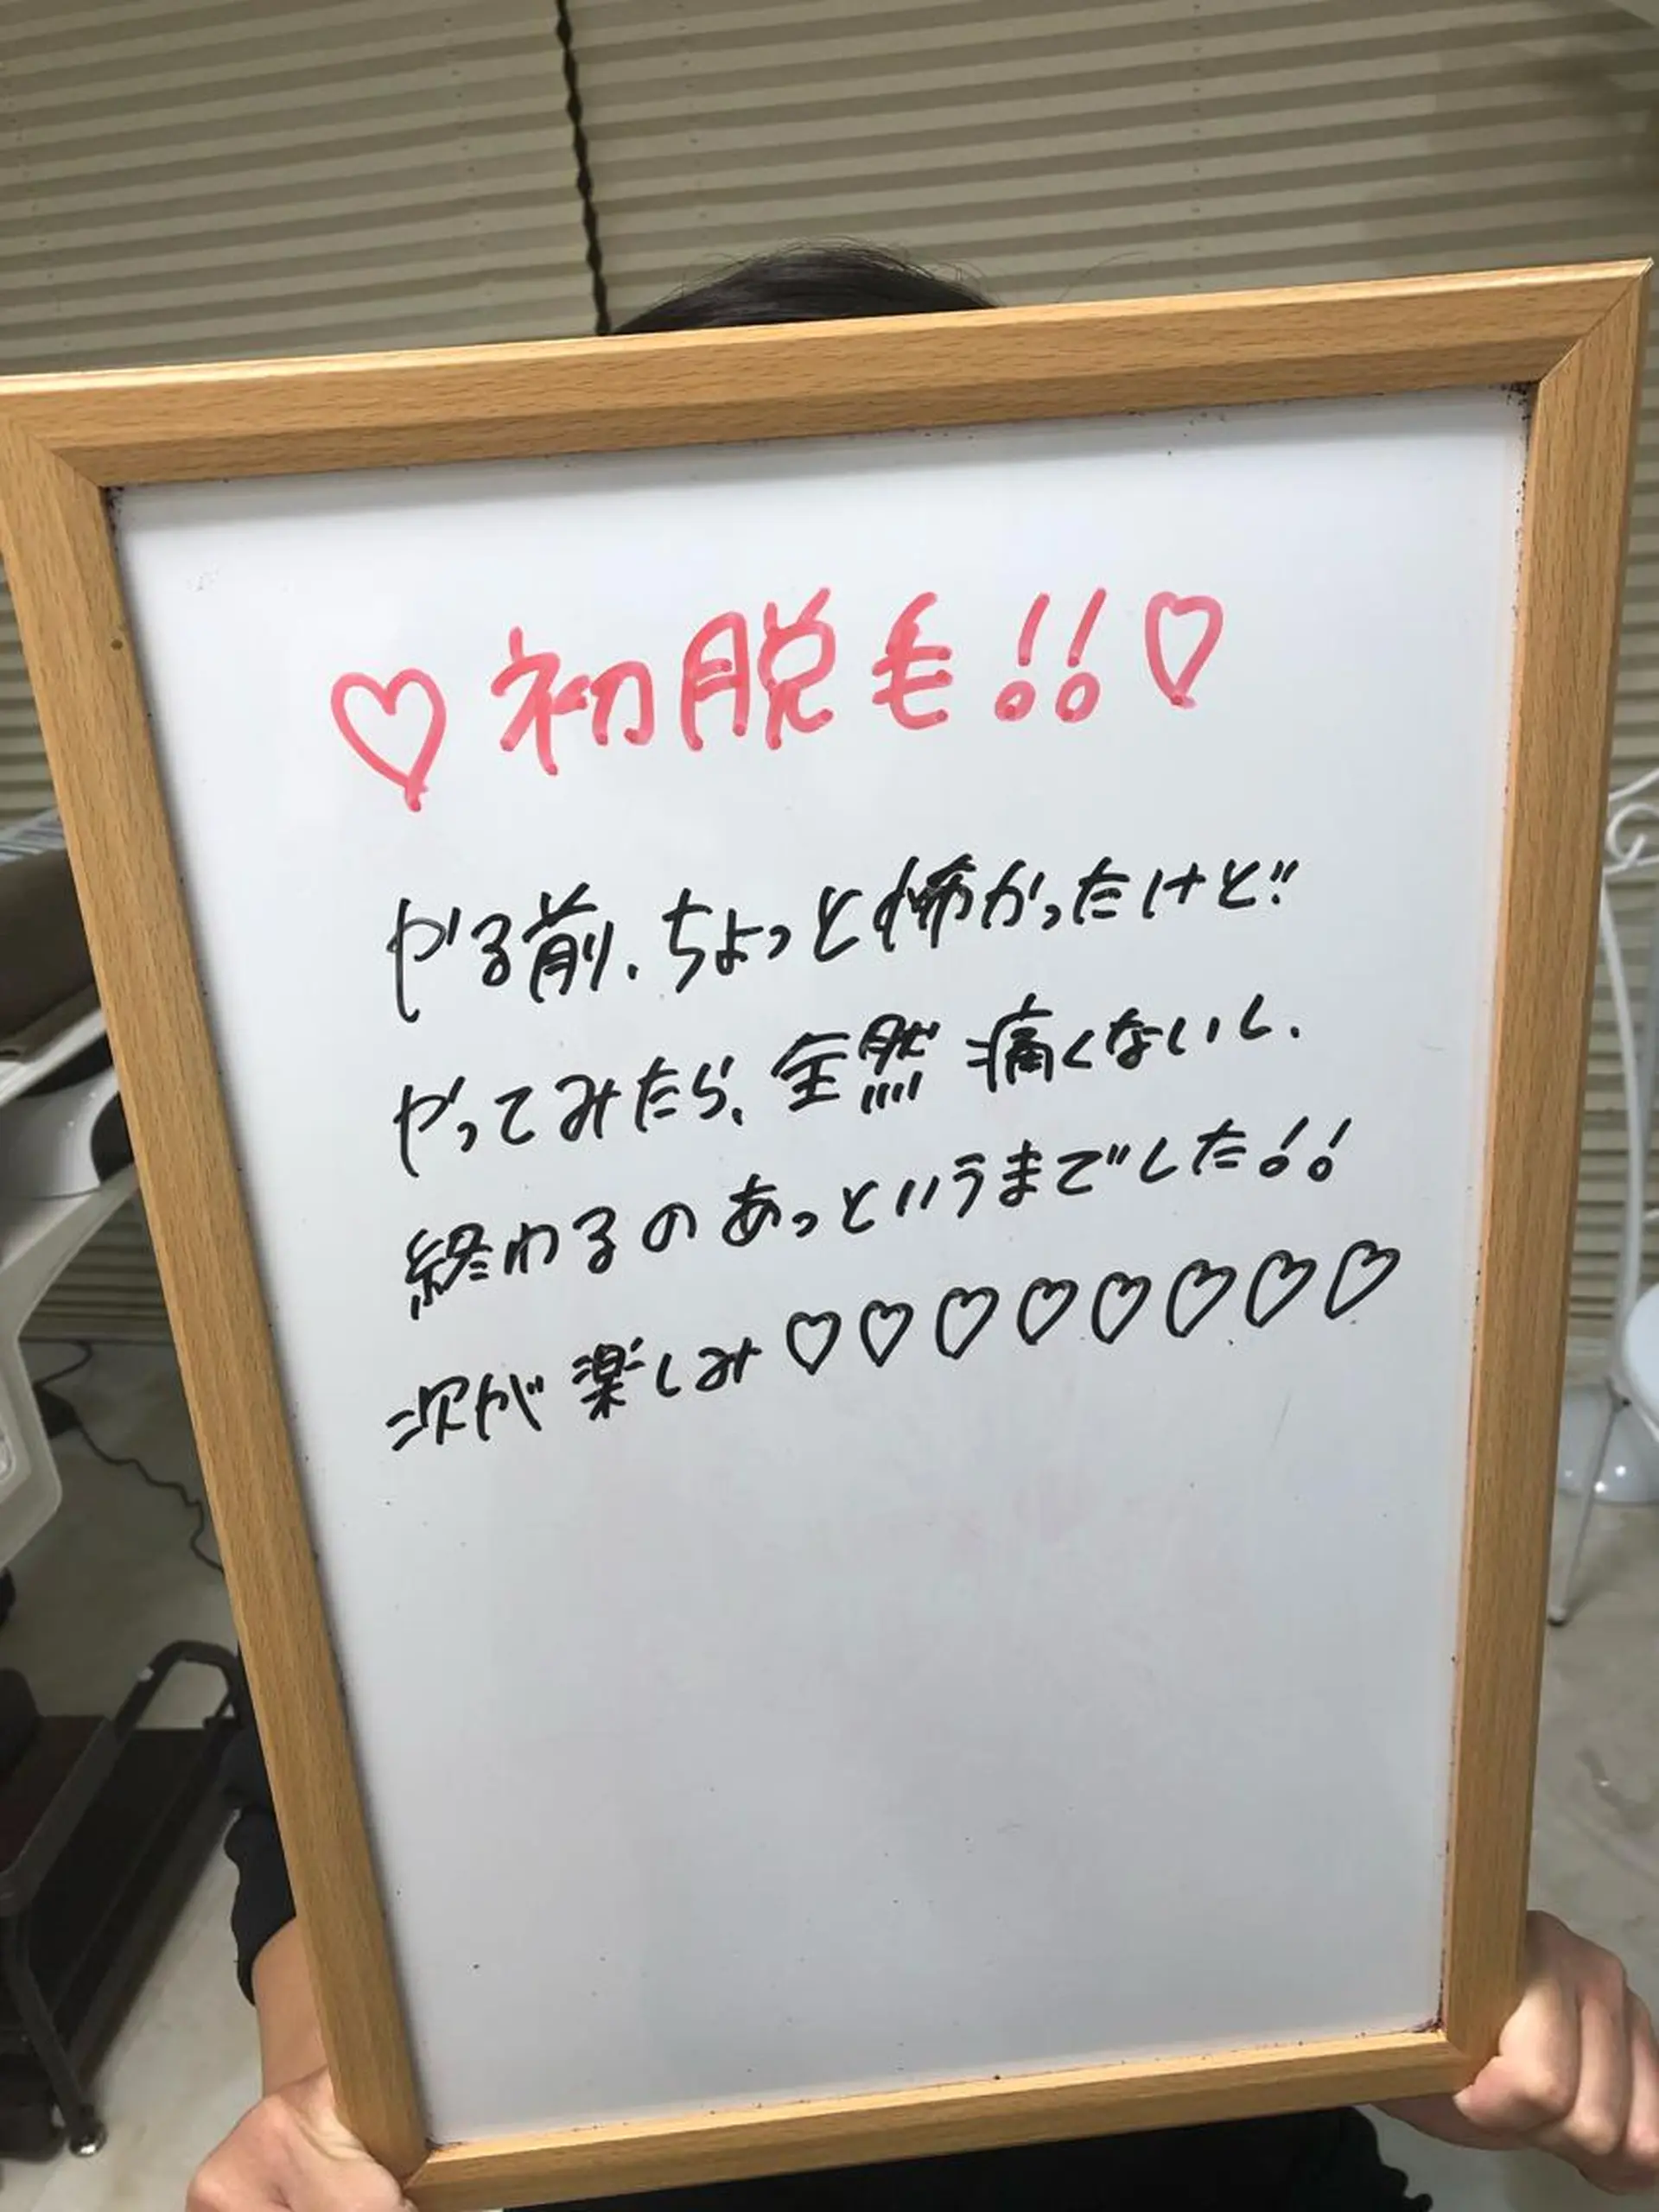 ♡初脱毛!!♡
やる前、ちょっと怖かったけど!!
やってみたら、全然痛くないし、
終わるのあっというまでした!!
次が楽しみ♡♡♡♡♡♡♡♡